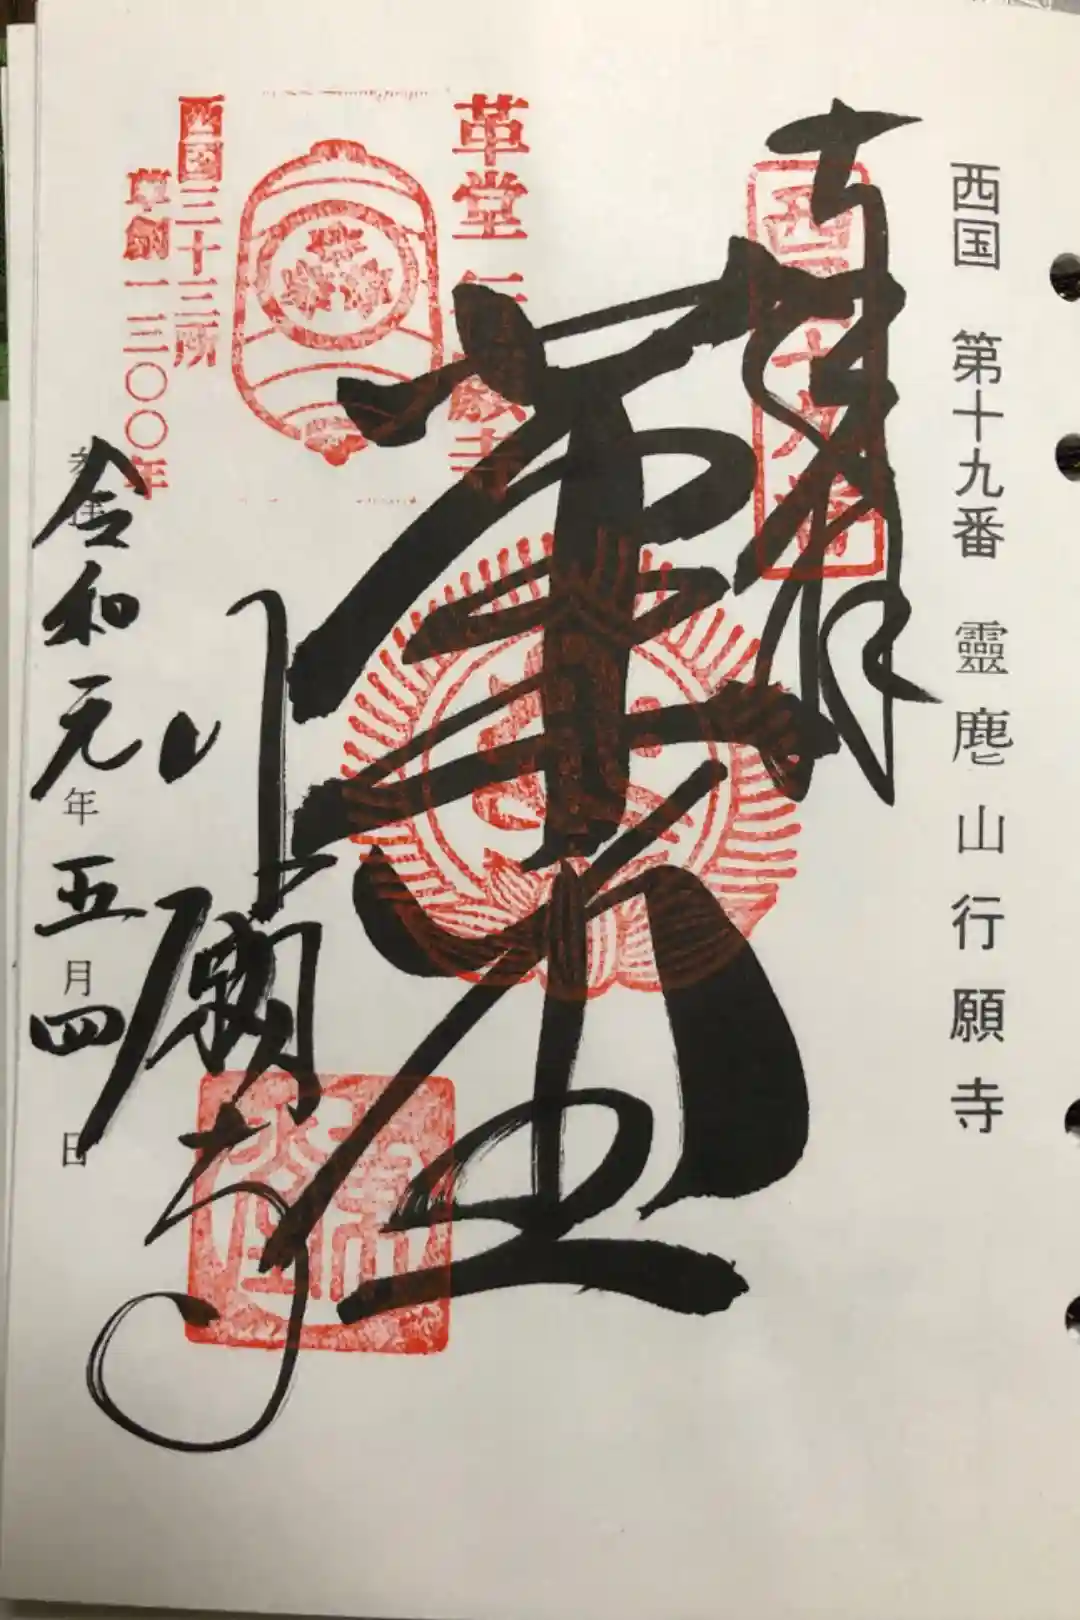 西国 第十九番 靈麀山行願寺
奉拝
西国十九番
革堂
革堂行願寺
西国三十三所
草創一三〇〇年
行願寺
令和元年五月四日